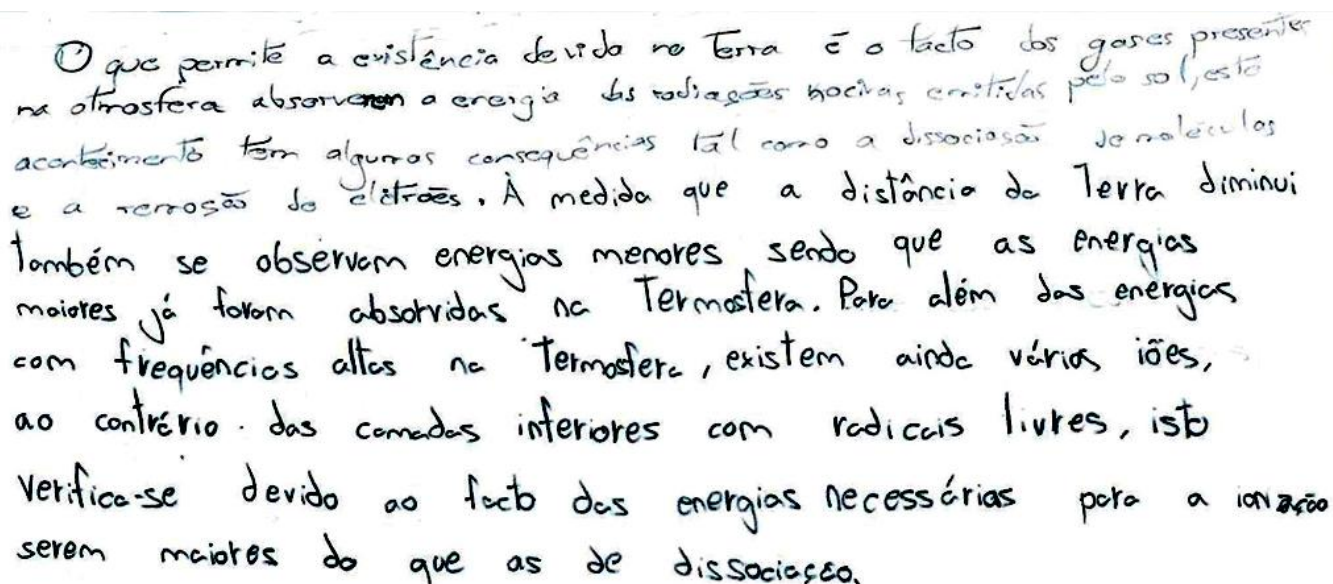 O que permite a existência de vida na Terra é o facto dos gases presentes
na atmosfera absorverem a energia das radiações nocivas emitidas pelo sol, este
acontecimento tem algumas consequências tal como a dissociasão de moléculas
e a remosão de eletrões. À medida que a distância da Terra diminui
também se observam energias menores sendo que as energias
maiores já foram absorvidas na Termosfera. Para além das energias
com frequências altas na Termosfera, existem ainda vários iões,
ao contrário das camadas inferiores com radicais livres, isto
verifica-se devido ao facto das energias necessárias para a ionização
serem maiores do que as de dissociação.